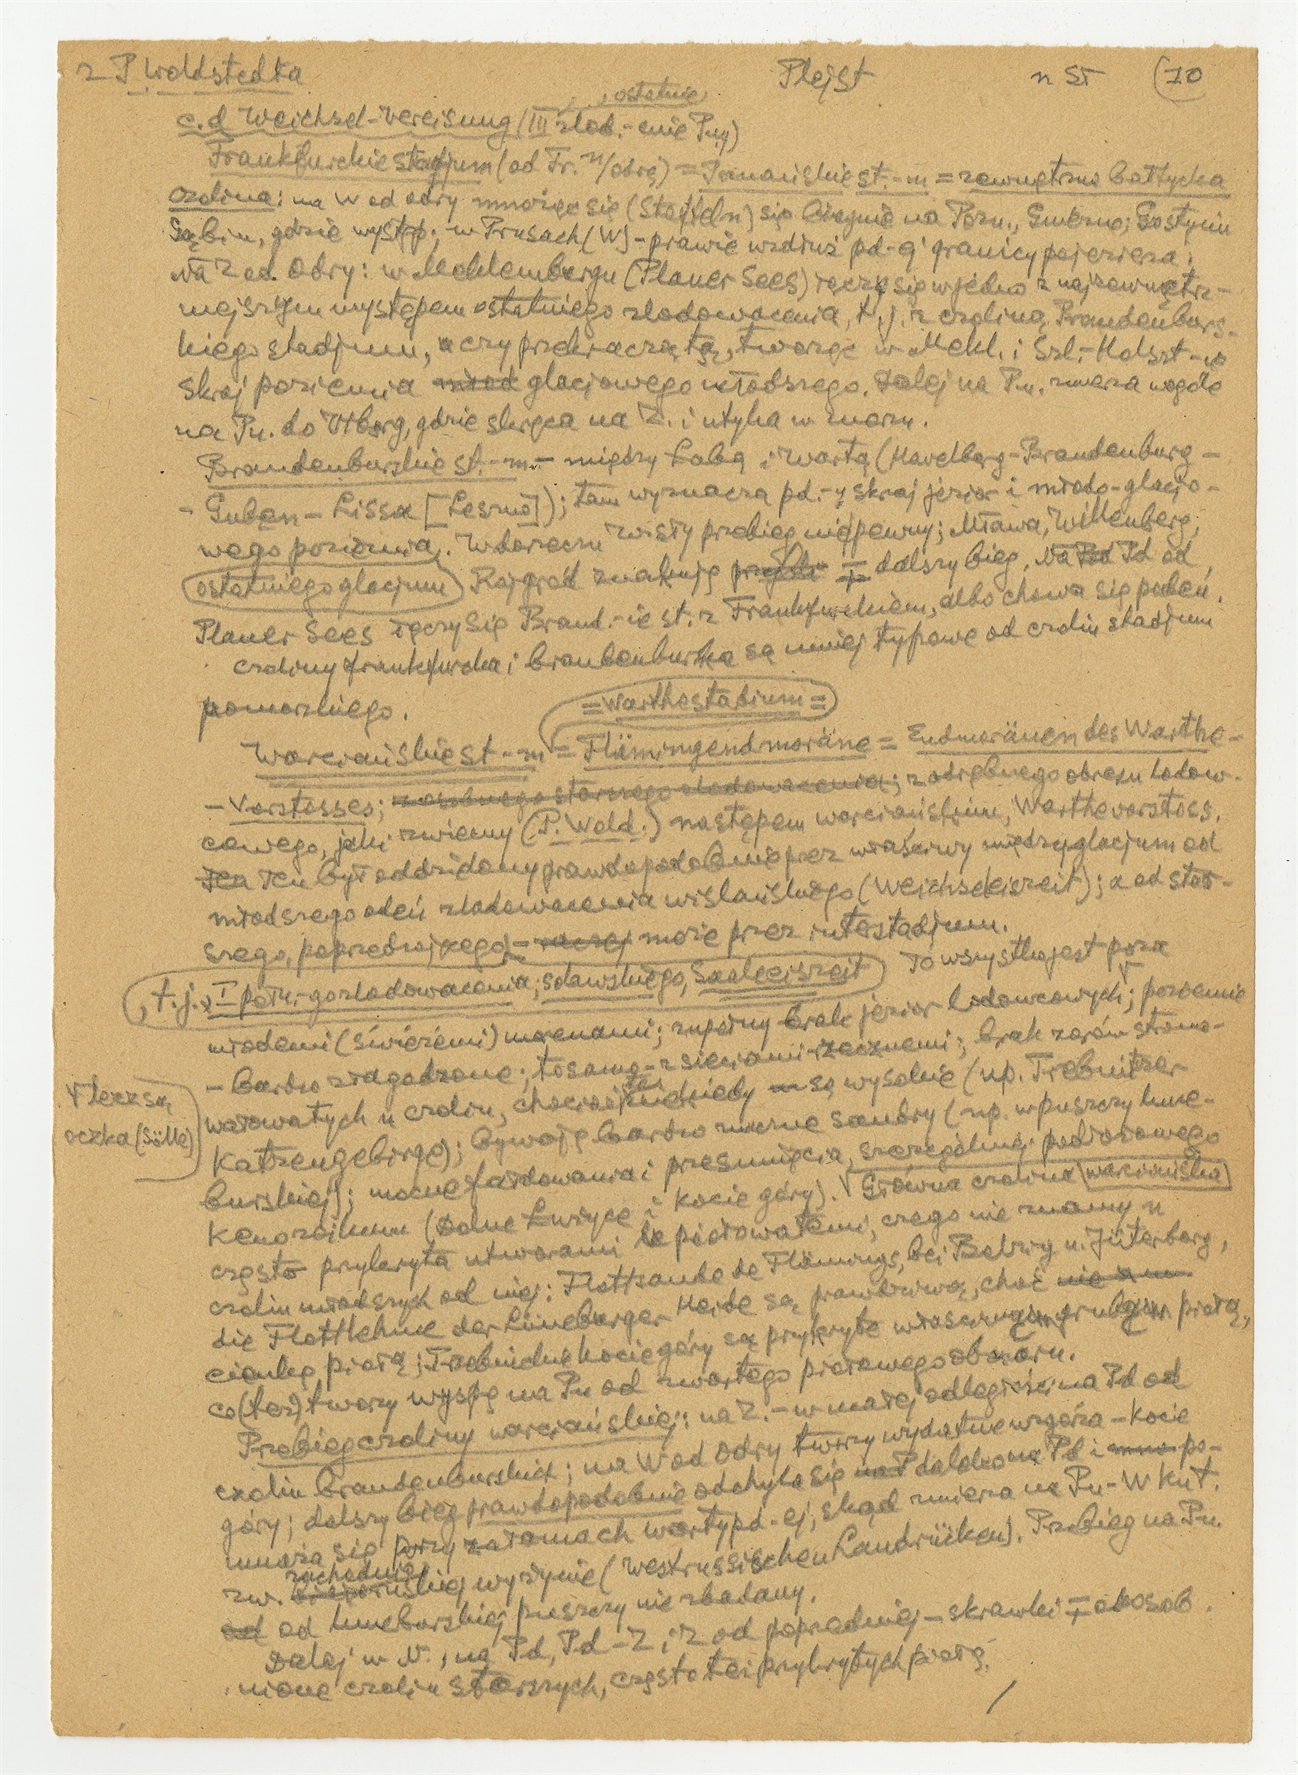 z P. Woldstedta Plejst n St (10
c.d Weichsel-Vereisung (III zlod.-enie Pn.) ostatnie
Frankfurckie stadjum (od Fr. n/odrą) = Poznańskie st.-m = zewnętrzna bałtycka
czolina; na W od odry mnożąc się (Staffeln) się biegnie na Pozn., Gniezno, Gostynin
Gąbin, gdzie występ; w Prusach (W) - prawie wzdłuż pd-ej granicy pojezierza;
na Z od Odry: w Meklemburgu (Plauer Sees) łączy się w jedno z najzewnętrz-
niejszym występem ostatniego zlodowacenia, t.j. z czoliną Brandenburs-
kiego stadjum, czy przekracza tę, tworząc w Mekl. i Szl.-Holszt-
skraj poziemia glacjowego młodszego. Dalej na Pn. zmierza wogóle
na Pn. do Viborg, gdzie skręca na Z. i utyka w morzu.
Brandenburskie st.-m - między Łabą i Wartą (Havelberg-Brandenburg -
- Guben - Lissa [Leszno]); tam wyznacza pd.-y skraj jezior i młodo-glacjo-
wego poziemia. W dorzeczu Wisły przebieg niepewny; Mława, Willenberg,
ostatniego glacjum Rajgród znakuję ∓ dalszy bieg. Na Pd od
Plauer Sees łączy się Brand.-ie st. z Frankfurckiem, albo chowa się pod eń.
czoliny frankfurcka i brandenburska są mniej typowe od czolin stadjum
pomorskiego.
= Warthestadium =
Warciańskie st-m = Flämingendmoräne = Endmoränen des Warthe-
- Vorstosses; z odrębnego obrazu lodow-
cowego, jaki zwiemy (P. Wold.) następem warciańskim, Warthevorstoss.
Ten był oddzielony prawdopodobnie przez właściwy międzyglacjum od
młodszego odeń zlodowacenia wiślańskiego (Weichseleiszeit); a od star-
szego, poprzedzającego - może przez intestadjum.
, t.j. I półn.-go zlodowacenia, solawskiego, Saaleeiszeit To wszystko jest poza
młodemi (świeżemi) morenami; zupełny brak jezior lodowcowych; poziemie
- bardzo złagodzone; to samo - z sieciami rzecznemi; brak zarów stromo-
Vlecz są oczka (Sölle)
warowatych u czolin, chociaż niekiedy są wysokie (np. Trebnitzer
Katzengebirge); bywają bardzo mocne sandry (np. w puszczy lune-
burskiej); mocne fałdowania i przesunięcia, szczególniej podłożowego
Kenozoikum (Dolne Łużyce i Kocie góry). Główna czolina warciańska
często przykryta utworami piarowatemi, czego nie znamy u
czolin młodszych od niej: Flottsande de Flämings, bei Belzig u. Jüterborg,
die Flottlehme der Lüneburger Heide są prawdziwą, choć
cienką piarą; Trzebnickie kocie góry są przykryte właściwym grubym piarą,
co (też) tworzy wyspę na Pn od zwartego piarowego obszaru.
Przebieg czoliny warciańskiej: na Z. - w małej odległości na Pd od
czolin brandenburskich; na W od Odry tworzy wydatne wzgórza - kocie
góry; dalszy bieg prawdopodobnie odchyla się daleko na Pd i po-
mnaża się przy załamach warty pd-ej, skąd zmierza na Pn-W ku t.
zw. zachodniej wyżynie (Westrussischen Landrücken). Przebieg na Pn.
od luneburskiej puszczy nie zbadany.
Dalej w N., na Pd, Pd-Z i Z od poprzedniej - skrawki ∓ odosob.
nione czolin starszych, często też przykrytych piarą.